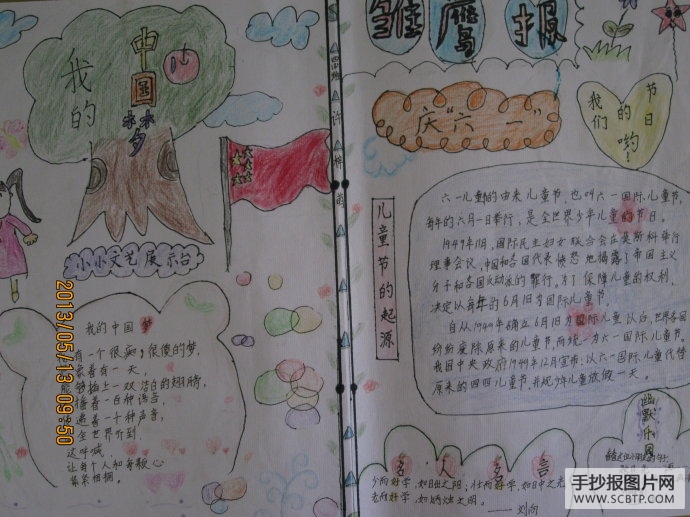 我的
中国梦
小小文艺展示台
我的中国梦
有一个很痴，很傻的梦，
有一天，
能够插上一双洁白的翅膀，
百种语言，
着一千种声音，
全世界听到
这呼喊
让每个人和每颗心
紧紧相拥。
2013/05/13 09:50
雏鹰报
庆“六一”
我们的节日哟！
儿童节的起源
六一儿童的由来儿童节，也叫六一国际儿童节，
每年的六月一日举行，是全世界少年儿童的节日。
国际民主妇女联合会在莫斯科举行
理事会议，中国和各国代表愤怒地揭露了帝国主义
分子和各国反动派的罪行。为了保障儿童的权利，
决定以每年的6月1日为国际儿童节。
自从1949年确立6月1日为国际儿童以台，世界各国
纷纷废除原来的儿童节而统一为六一国际儿童节。
我国中央政府1949年12月宣布：以六一国际儿童代替
原来的四四儿童节，并规少年儿童放假一天。
名人名言
少而好学，如日出之阳；壮而好学，如日中之光
老而好学，如炳烛之明。
——刘向
幽默乐园
手抄报图片网
WWW.SCBTP.COM